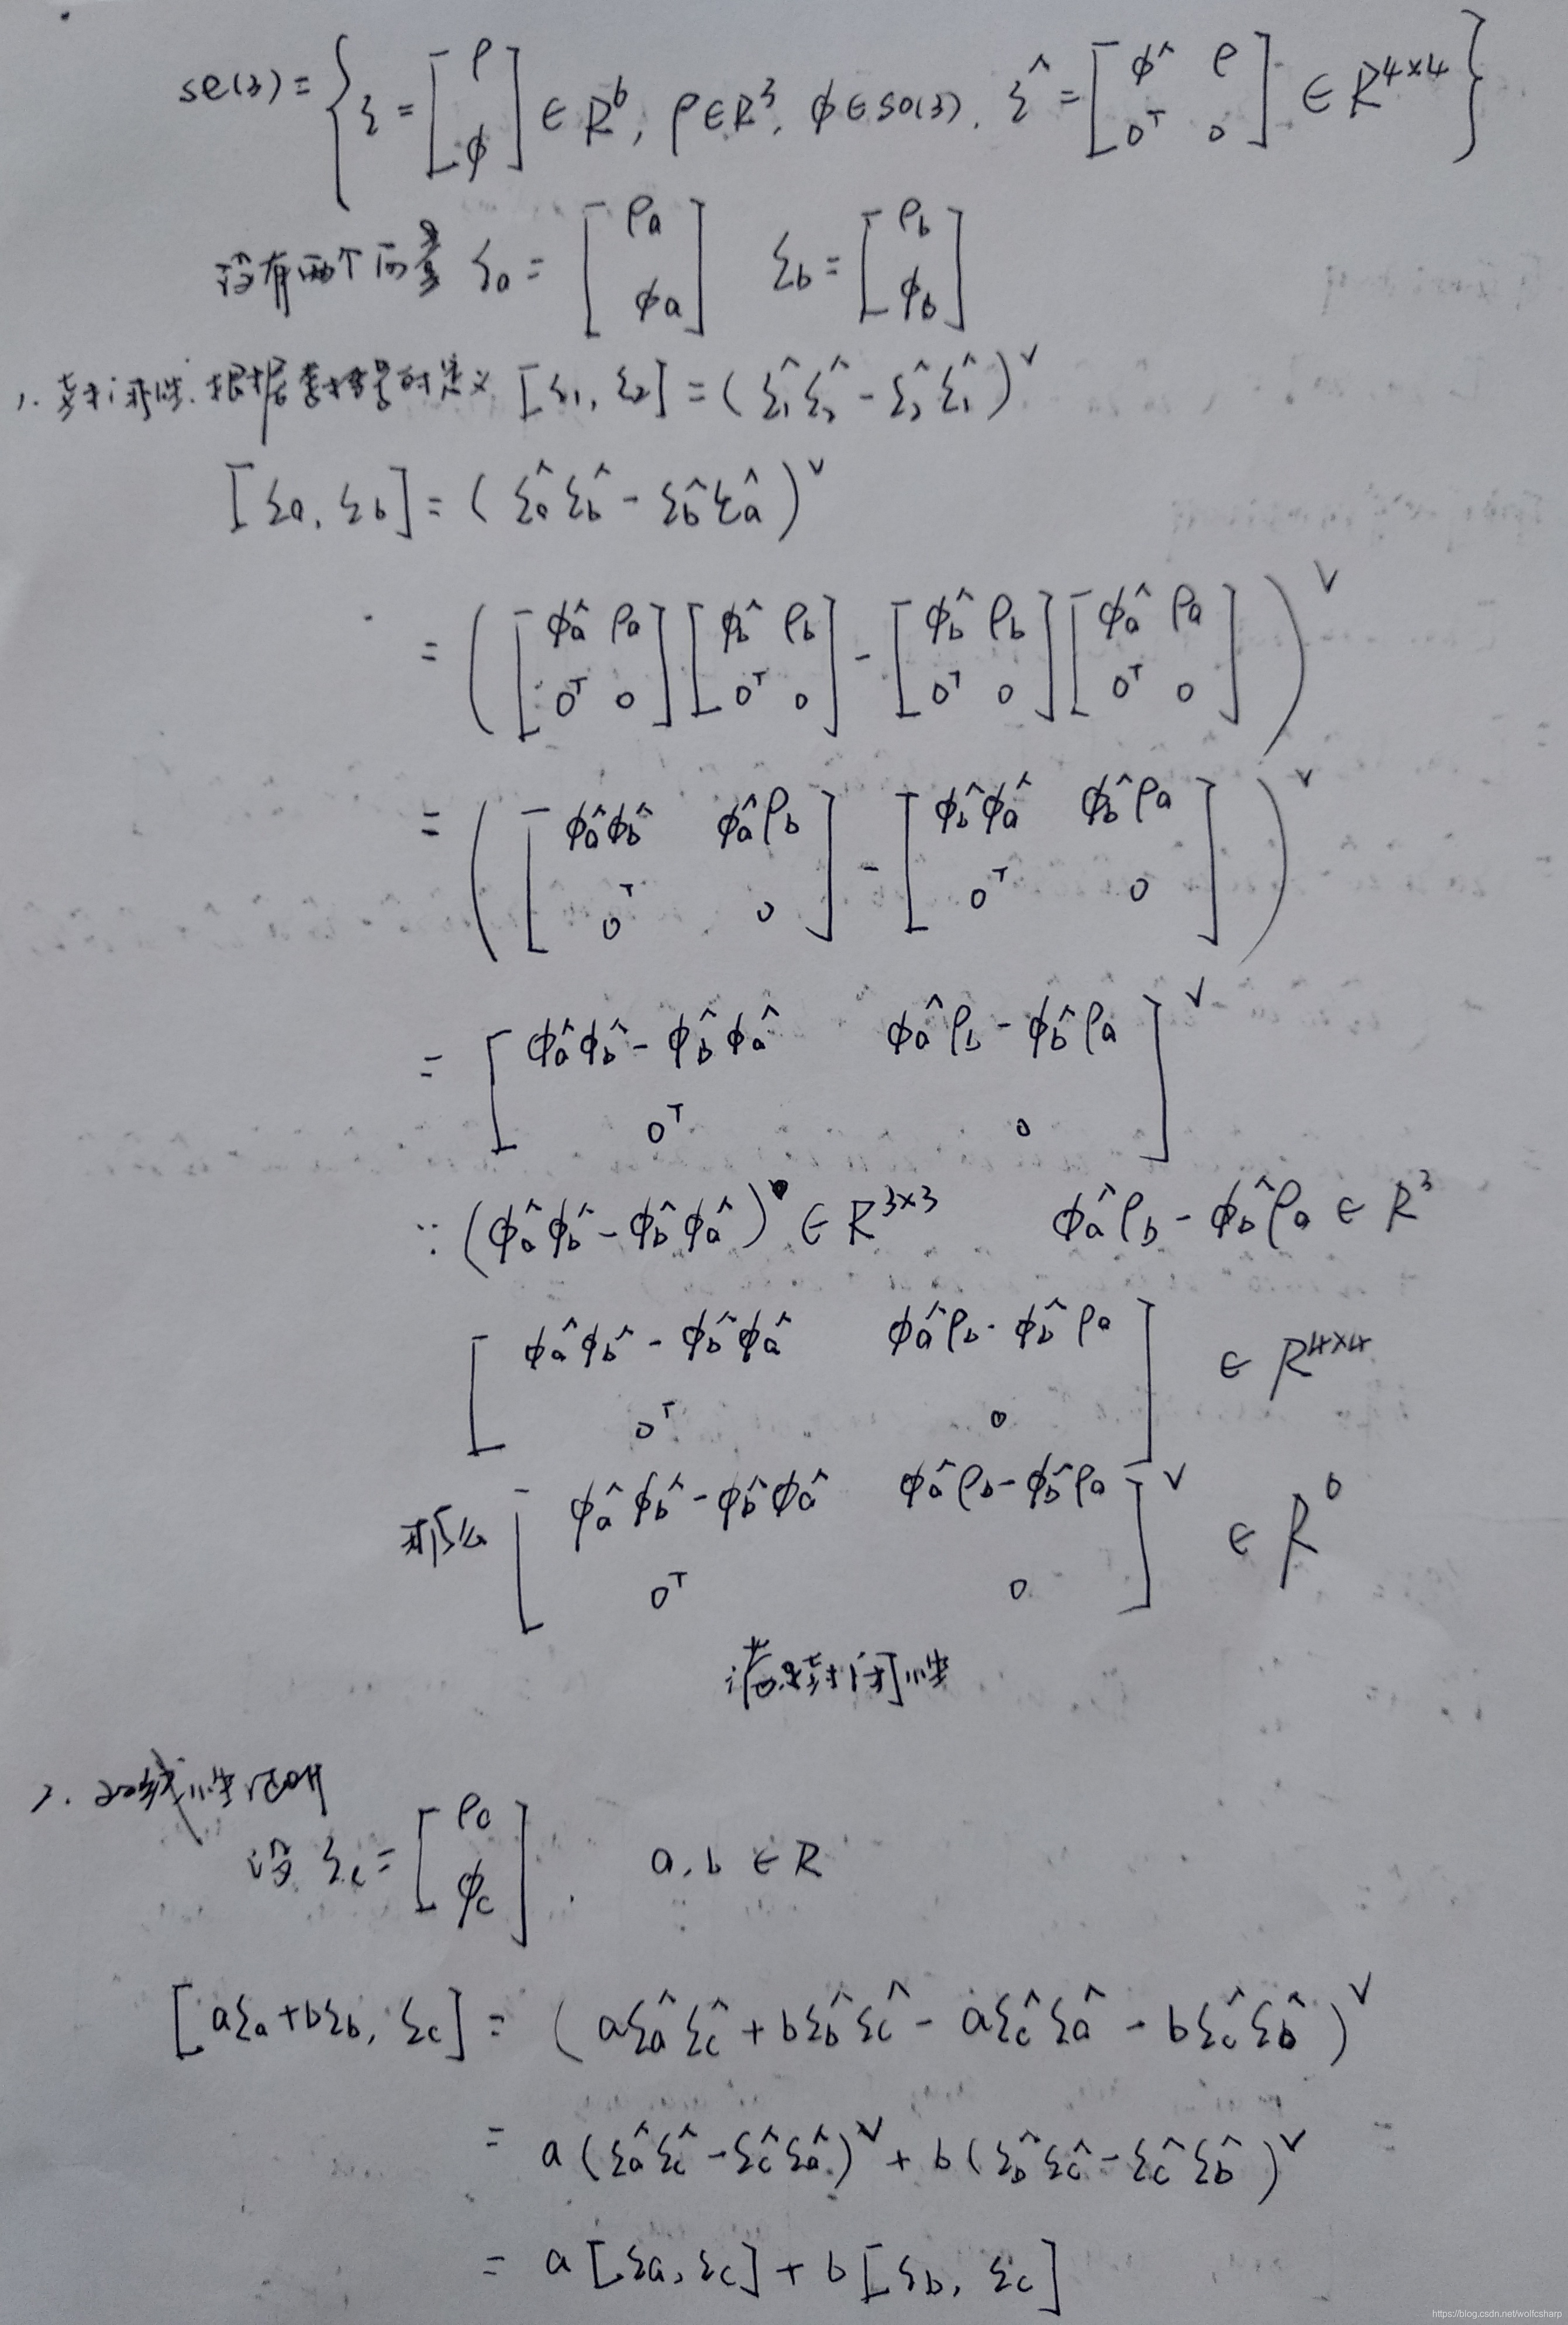 se(3) = { ξ = [ρ ϕ] ∈ R⁶, ρ ∈ R³, ϕ ∈ so(3), ξ^ = [ϕ^ ρ 0ᵀ 0] ∈ R⁴ˣ⁴ }
设有两个向量 ξa = [ρa ϕa] ξb = [ρb ϕb]
1. 封闭性. 根据李括号的定义 [ξ1, ξ2] = (ξ1^ξ2^ - ξ2^ξ1^)ᵛ
[ξa, ξb] = (ξa^ξb^ - ξb^ξa^)ᵛ
= ( [ϕa^ ρa 0ᵀ 0] [ϕb^ ρb 0ᵀ 0] - [ϕb^ ρb 0ᵀ 0] [ϕa^ ρa 0ᵀ 0] )ᵛ
= ( [ϕa^ϕb^ ϕa^ρb 0ᵀ 0] - [ϕb^ϕa^ ϕb^ρa 0ᵀ 0] )ᵛ
= [ϕa^ϕb^ - ϕb^ϕa^ ϕa^ρb - ϕb^ρa 0ᵀ 0]ᵛ
∵ (ϕa^ϕb^ - ϕb^ϕa^) ∈ R³ˣ³ ϕa^ρb - ϕb^ρa ∈ R³
[ϕa^ϕb^ - ϕb^ϕa^ ϕa^ρb - ϕb^ρa 0ᵀ 0] ∈ R⁴ˣ⁴
那么 [ϕa^ϕb^ - ϕb^ϕa^ ϕa^ρb - ϕb^ρa 0ᵀ 0]ᵛ ∈ R⁶
满足封闭性
2. 双线性证明
设 ξc = [ρc ϕc] . a, b ∈ R
[aξa + bξb, ξc] = (aξa^ξc^ + bξb^ξc^ - aξc^ξa^ - bξc^ξb^)ᵛ
= a(ξa^ξc^ - ξc^ξa^)ᵛ + b(ξb^ξc^ - ξc^ξb^)ᵛ
= a[ξa, ξc] + b[ξb, ξc]
https://blog.csdn.net/wolfcsharp